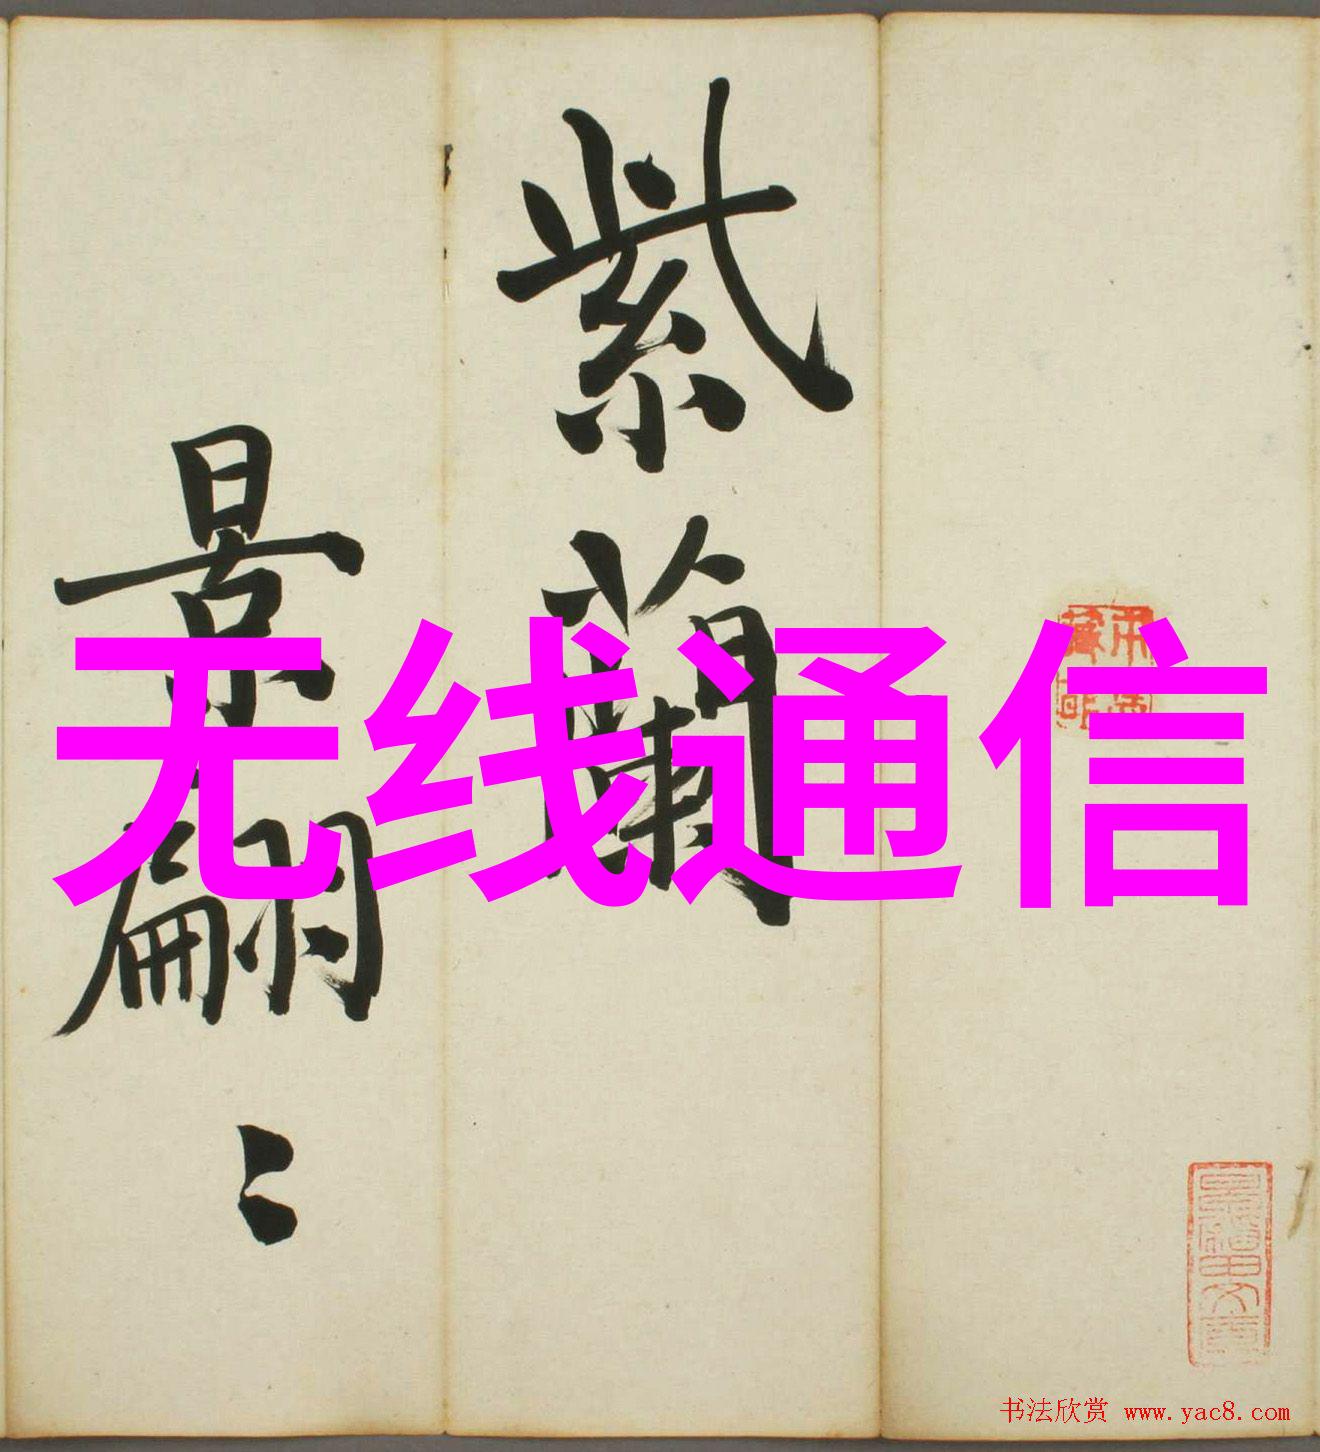 紫蘭
景翩〻
无线通信
书法欣赏 www.yac8.com